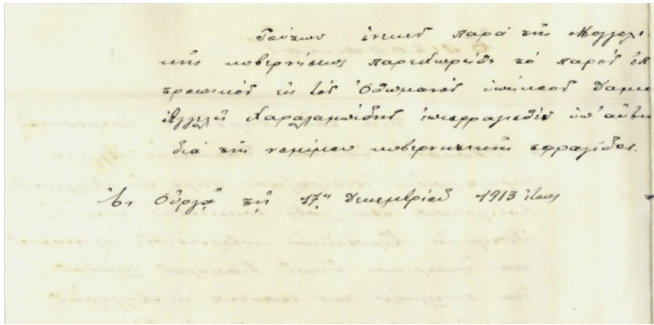 Τούτων ἕνεκεν παρὰ τῆς Μογγολι-
κῆς κυβερνήσεως παρεχωρήθη τὸ παρὸν ἐπι
τροπικὸν εἰς τὸν Ὀθωμανὸν ὑπήκοον
Χαραλαμπίδην ἐπισφραγισθὲν ὑπ' αὐτῆς
διὰ τῆς νομίμου κυβερνητικῆς σφραγῖδος.
Ἐν Οὔργᾳ τῇ 17ῃ Δεκεμβρίου 1913 ἔτους